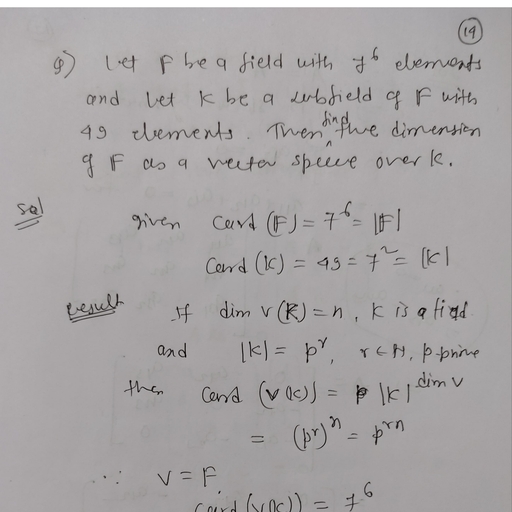 (19)
Q) Let F be a field with 7^6 elements
and let K be a subfield of F with
49 elements. Then find the dimension
of F as a vector space over K.
Sol given Card (F) = 7^6 = |F|
Card (K) = 49 = 7^2 = |K|
Result If dim V(K) = n, K is a field
and |K| = p^r, r ∈ N, p-prime
then Card (V(K)) = |K|^dim V
= (p^r)^n = p^rn
∵ V = F
Card (V(K)) = 7^6